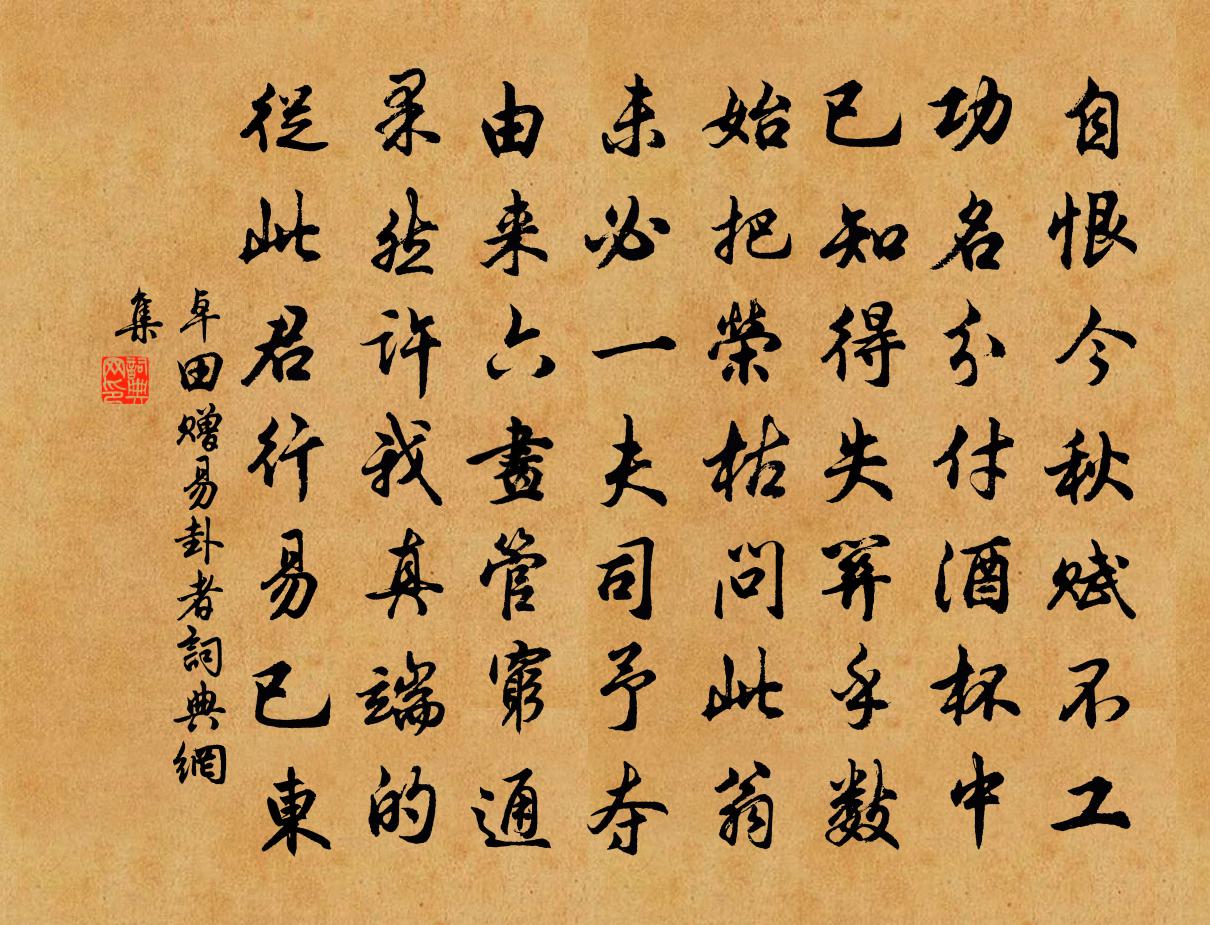 自恨今秋賦不工
功名分付酒杯中
已知得失關乎數
始把榮枯問此翁
未必一夫司予夺
由来六畫管窮通
果然許我真端的
從此君行易已東
卓田贈易卦者詞典網
集
詞典
网印